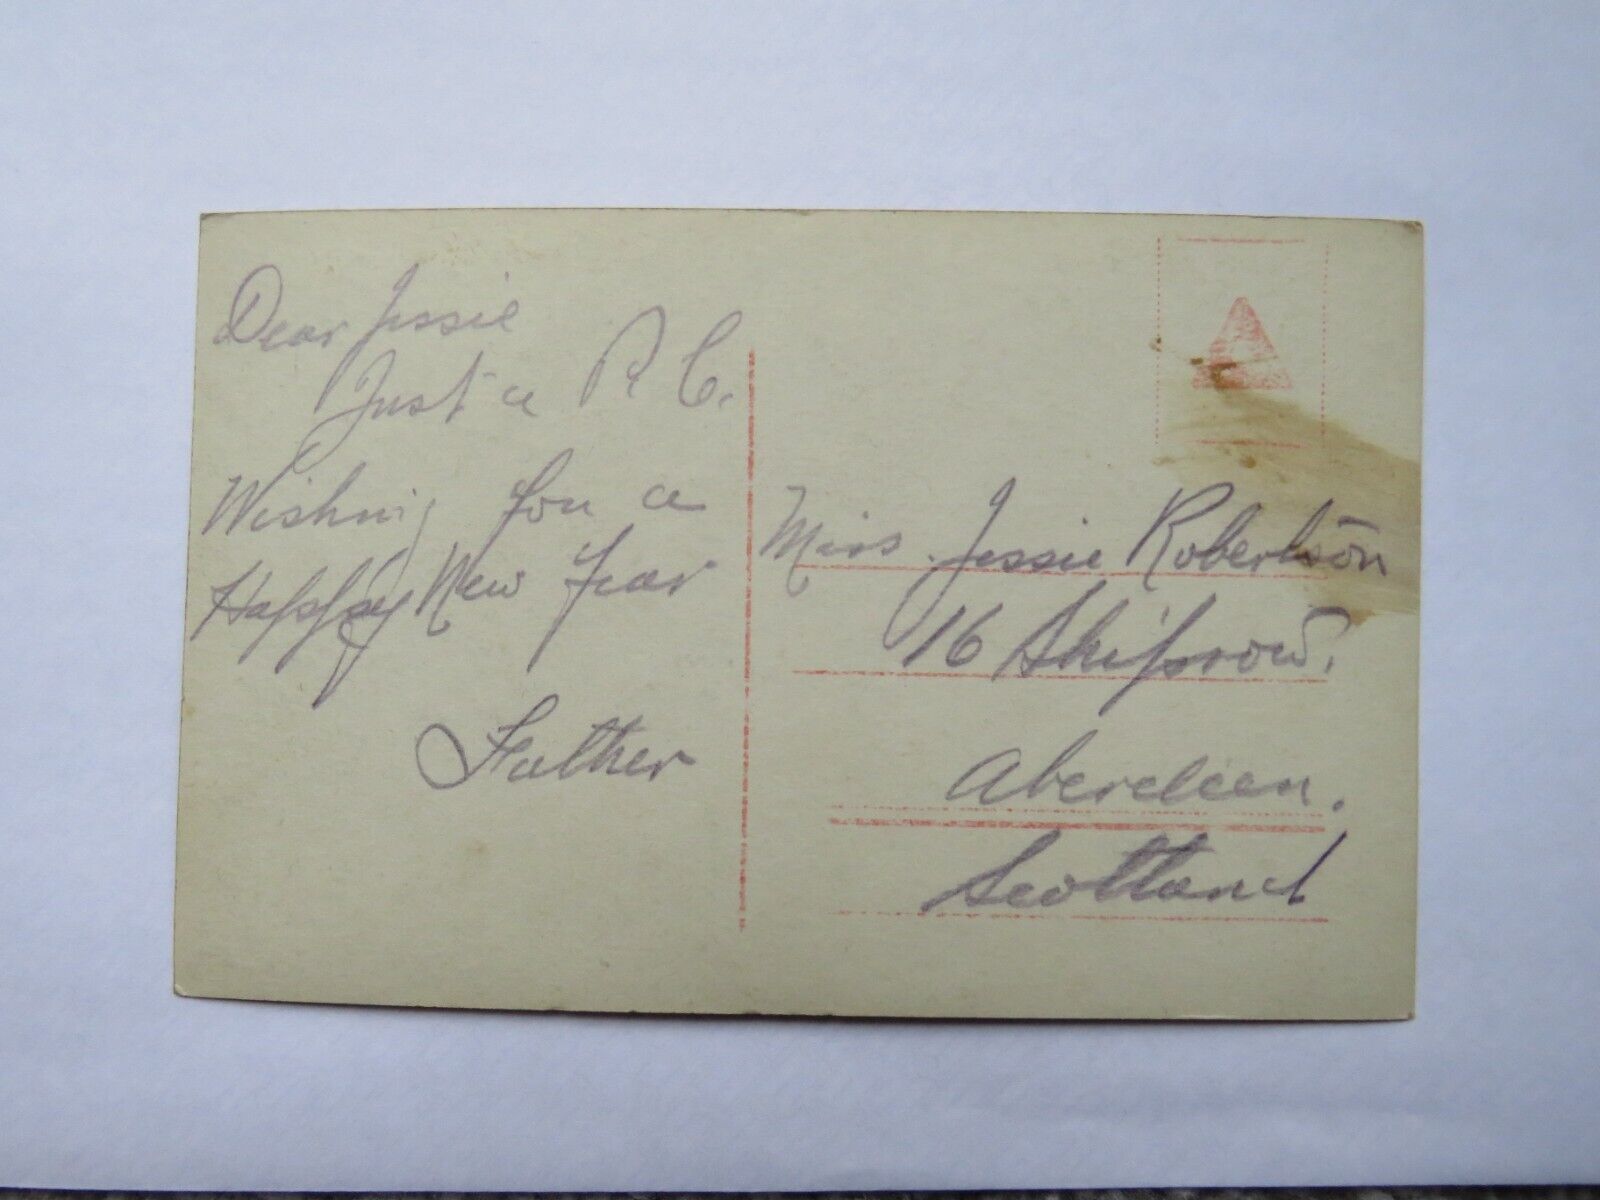 Dear Jessie
Just a P. C.
Wishing you a
Happy New Year
Father
Miss. Jessie Robertson
16 Shiprow.
Aberdeen.
Scotland